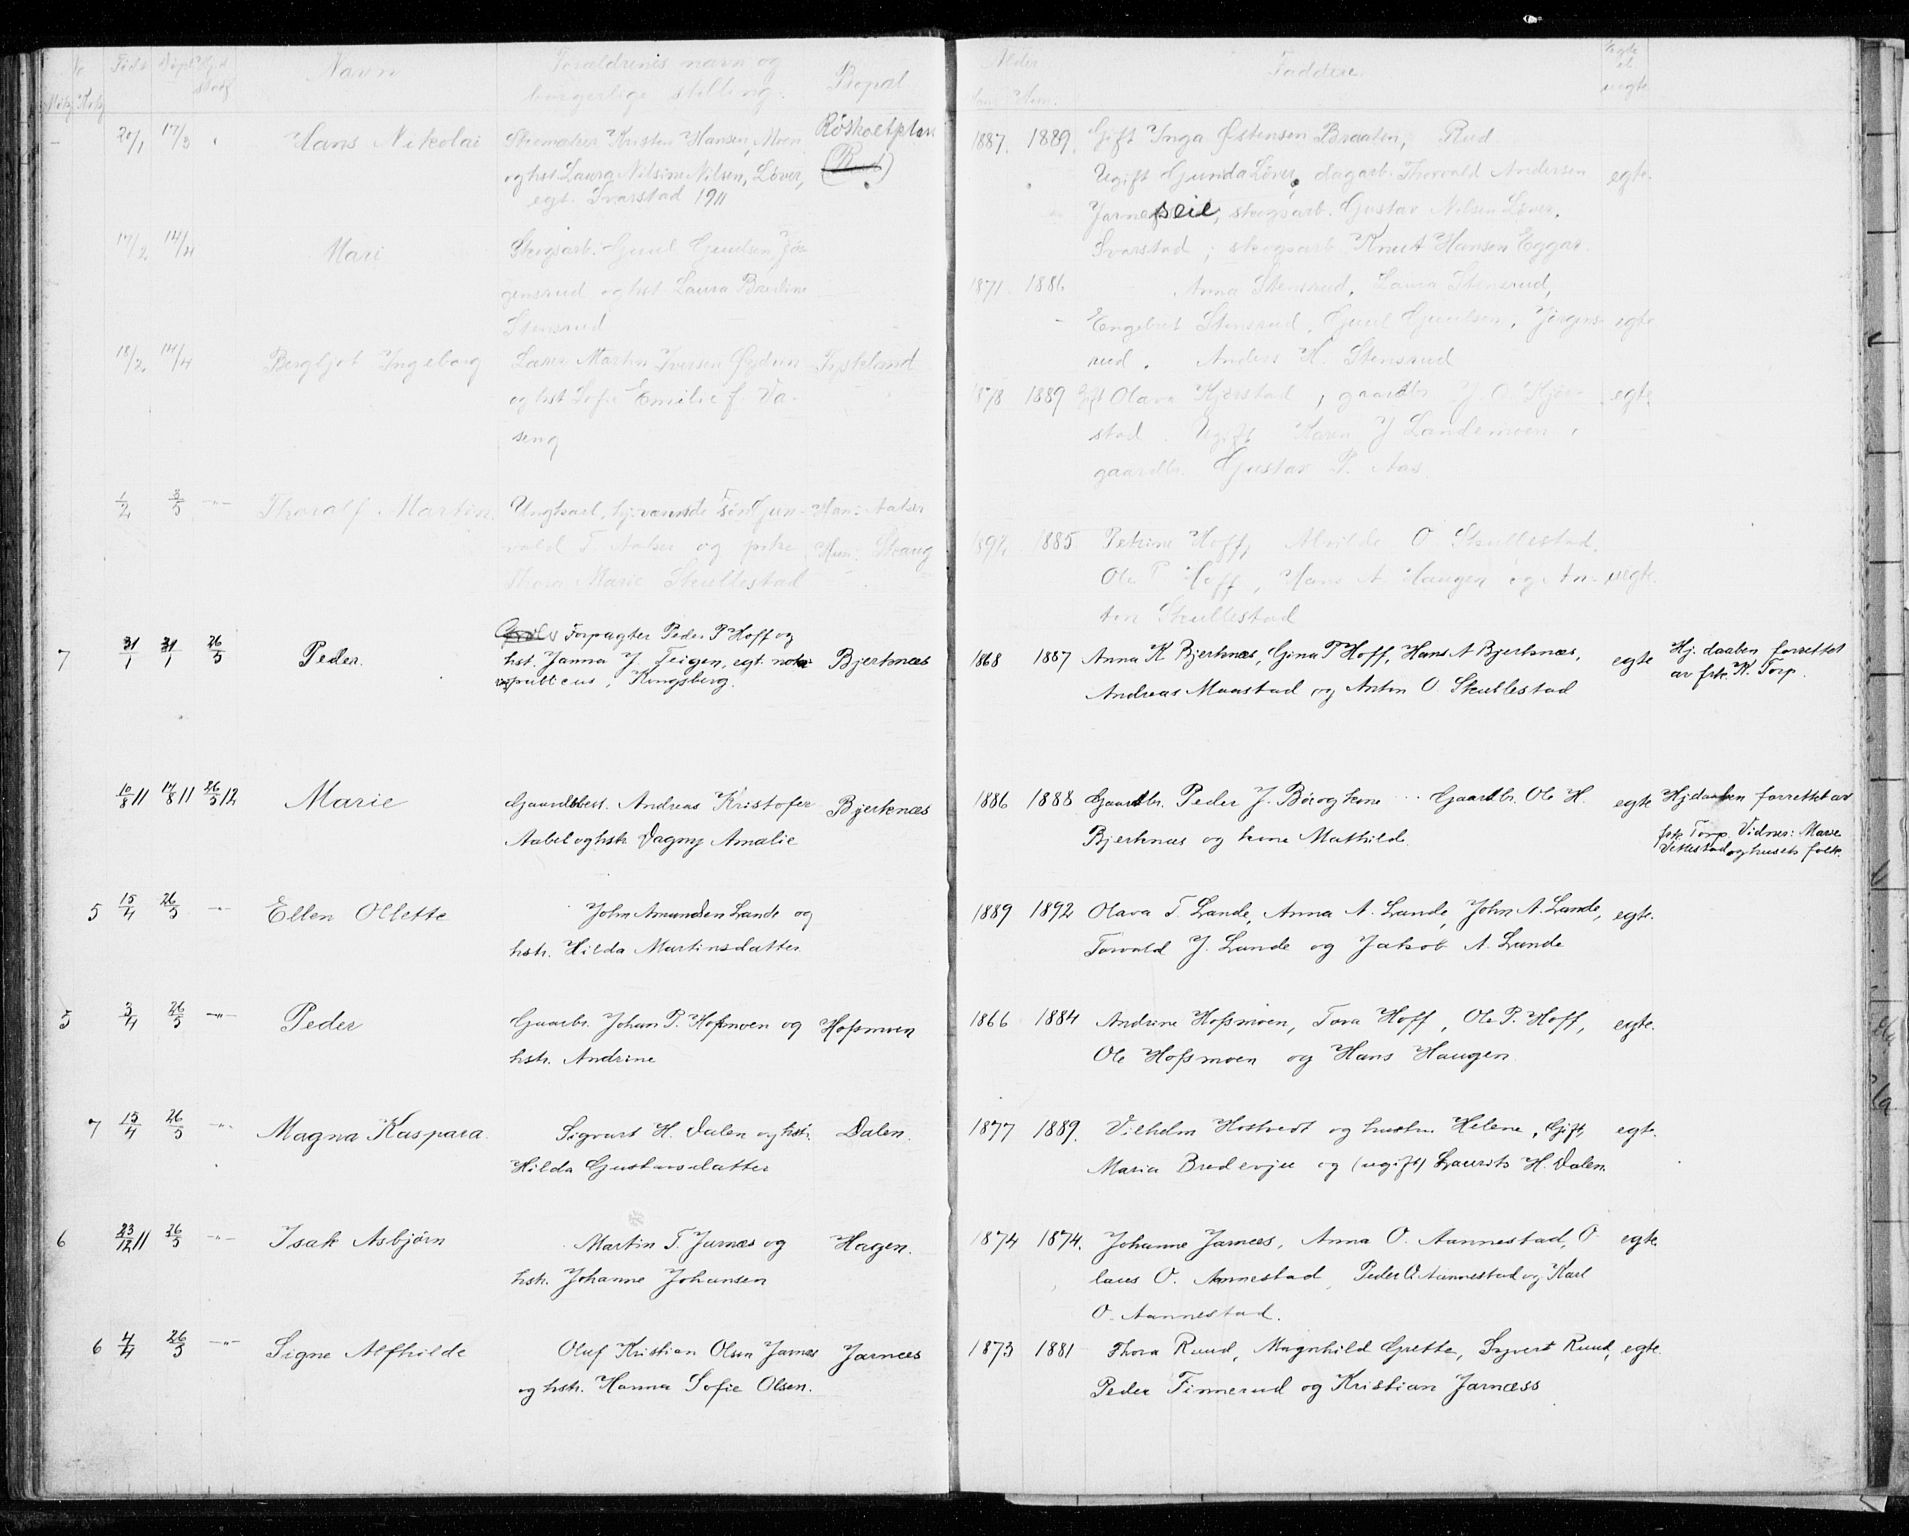 No Født Døpt Hjd. Navn Forældrenes navn og Bopæl
borgerlige stilling
Alder Faddere egte el. uegte
20/1 17/3 Hans Nikolai Skomaker Kristen Hansen, Moen Røskoltplan
og hst. Laura Nilsine Nilsen, Løver, (Rud)
egt. Svarstad 1911
1887. 1889. Gift Inga Østensen Braaten, Rud
Ugift Gunda Løver, dagarb. Thorvald Andersen egte.
Jarneseie, skogsarb. Gustav Nilsen Løver,
Svarstad; skogsarb. Knut Hansen Eggar.
17/2 14/4 Mari Skogsarb. Gunl Gunlsen Jør
gensrud og hst. Laura
Stensrud
1871 1886 Anna Stensrud, Laura Stensrud,
Engebret Stensrud, Gunl Gunlsen, Jørgens egte
rud. Anders H. Stensrud
18/2 14/4 Bergljot Ingeborg Martin Iversen Tyskland
og hst Sofie Emilie f. Va-
seng
1878 1889 gift Olava Kjørstad, gaardbr. J. O. Kjør- egte
stad. Ugift Karen J Landemoen,
gaardbr. Gustav P. Aas
1/2 3/5 -"- Thoralf Martin Ungkarl, hj.værende søn Gun- Han: Aalser
vald T. Aalser og pike Hun: Skaug
Thora Marie Skullestad
1892 1885 Petrine Hoff, Alvilde O. Skullestad,
Ole P Hoff, Hans A. Haugen og An- uegte
ton Skullestad
7 31/1 31/1 26/5 Peder. Forpagter Peder P Hoff og
hst. Janna J. Teigen, egt. nota- Bjerknæs
publicus, Kongsberg.
1868 1887 Anna K Bjerknæs, Gina P Hoff, Hans A Bjerknæs, egte Hj. daaben forrettet
Andreas Maastad og Anton O. Skullestad av frk. K. Torp.
10/8 11 17/8 11 26/5 12 Marie Gaardbest. Andreas Kristofer Bjerknæs
Aabel og hstr Dagny Amalie
1886 1888 Gaardbr. Peder J. Bø og kone Gaardbr. Ole H. egte Hjdaaben forrettet av
Bjerknæs og kone Mathilde frk Torp. Vidner: Marie
Vettestad og husets folk.
5 15/4 26/5 -"- Ellen Ollette John Amundsen Lande og
hstr. Hilda Martinsdatter
1889 1892 Olava T. Lande, Anna A. Lande, John A. Lande, egte.
Torvald J. Lande og Jakob A. Lande
5 3/4 26/5 -"- Peder Gaarbr. Johan P. Hofsmoen og Hofsmoen
hstr. Andrine
1866 1884 Andrine Hofsmoen, Tora Hoff, Ole P. Hoff, egte.
Ole Hofsmoen og Hans Haugen
7 15/4 26/5 -"- Magna Kaspara. Sigvart H. Dalen og hstr. Dalen.
Hilda Gustavsdatter
1877 1889. Vilhelm Hostvedt og hustru Helene, Gift, egte.
Maria Bredevjee og (ugift) Laurits H. Dalen.
6 23/12 11 26/5 -"- Isak Asbjørn Martin T. Jarnæs og Hagen.
hstr. Johanne Johansen
1874 1874. Johanne Jarnæs, Anna O. Aannestad, O- egte.
laus O. Annestad, Peder O Aannestad og Karl
O. Aannestad.
6 4/4 26/5 -"- Signe Alfhilde Oluf Kristian Olsen Jarnæs Jarnæs
og hstr. Hanna Sofie Olsen.
1873 1881 Thora Ruud, Magnhild Grette, Syvert Ruud, egte.
Peder Finnerud og Kristian Jarnæss